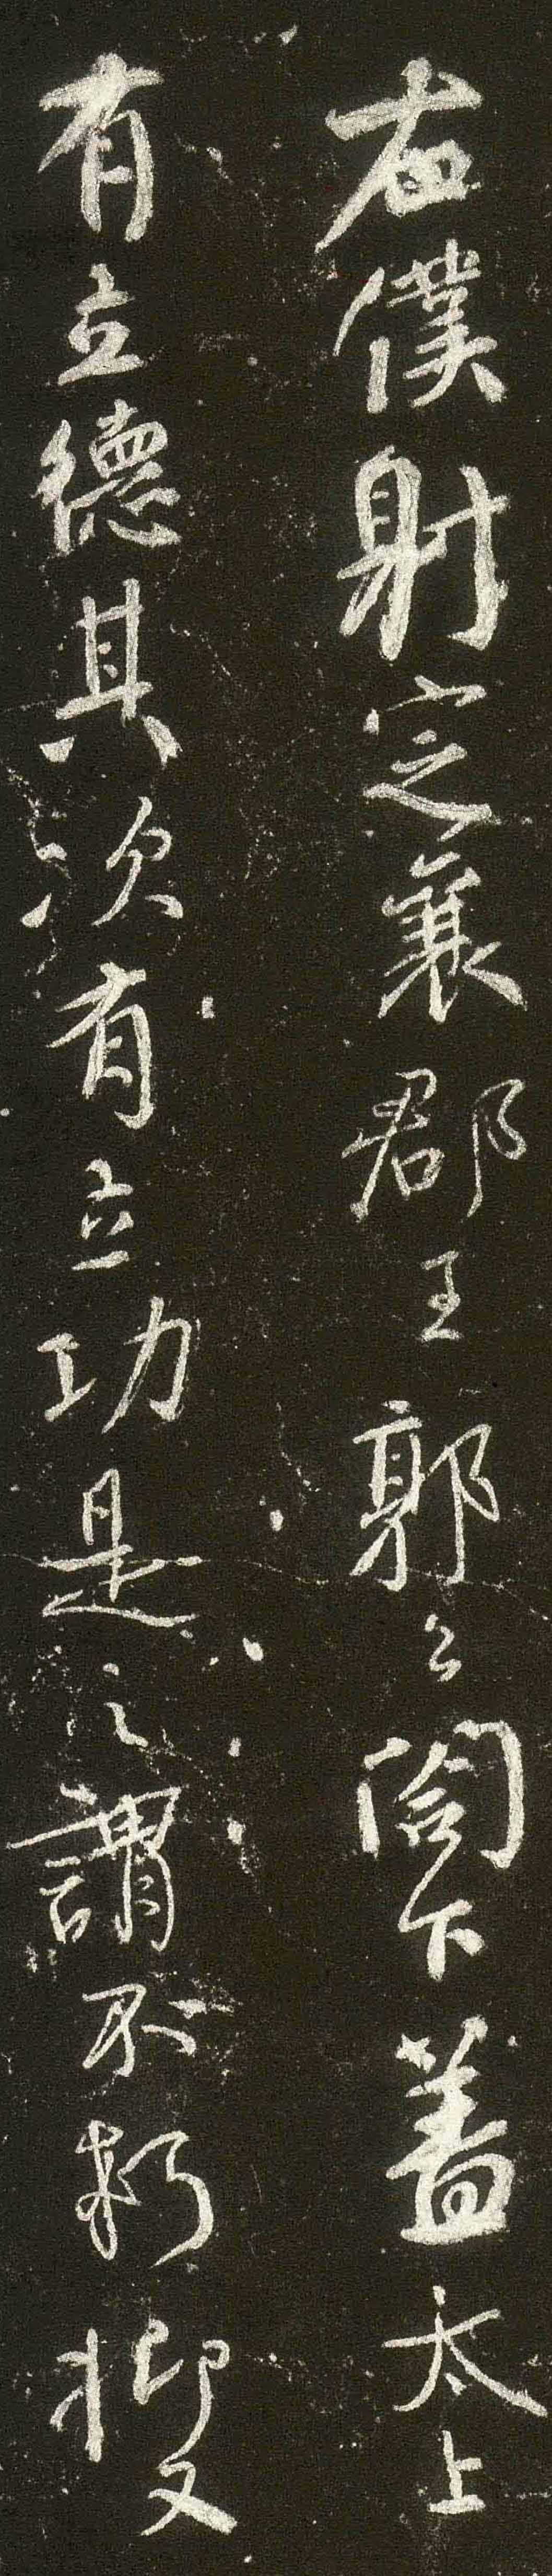 右僕射定襄郡王郭公閤下蓋太上
有立德其次有立功是之謂不朽抑又